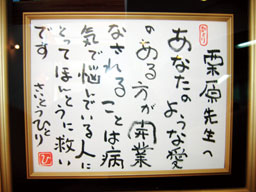 栗原先生へ
あなたのような愛
のある方が開業
なされることは病
気で悩んでいる人に
とってほんとうに救い
です
さいとうひとり
ひ